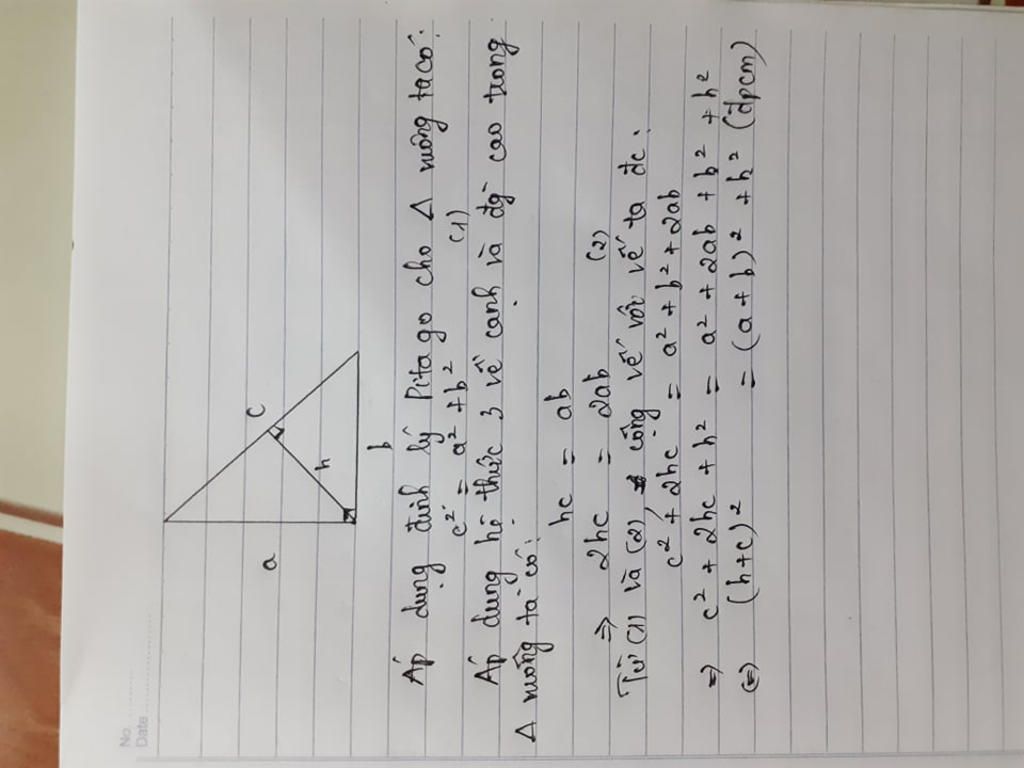 No. ............
Date ............
a
h
c
b
Áp dụng định lý Pitago cho Δ vuông ta có:
c² = a² + b² (1)
Áp dụng hệ thức 3 về cạnh và đg cao trong
Δ vuông ta có:
hc = ab
⇒ 2hc = 2ab (2)
Từ (1) và (2), cộng vế với vế ta đc:
c² + 2hc = a² + b² + 2ab
⇒ c² + 2hc + h² = a² + 2ab + b² + h²
⇔ (h+c)² = (a+b)² + h² (đpcm)